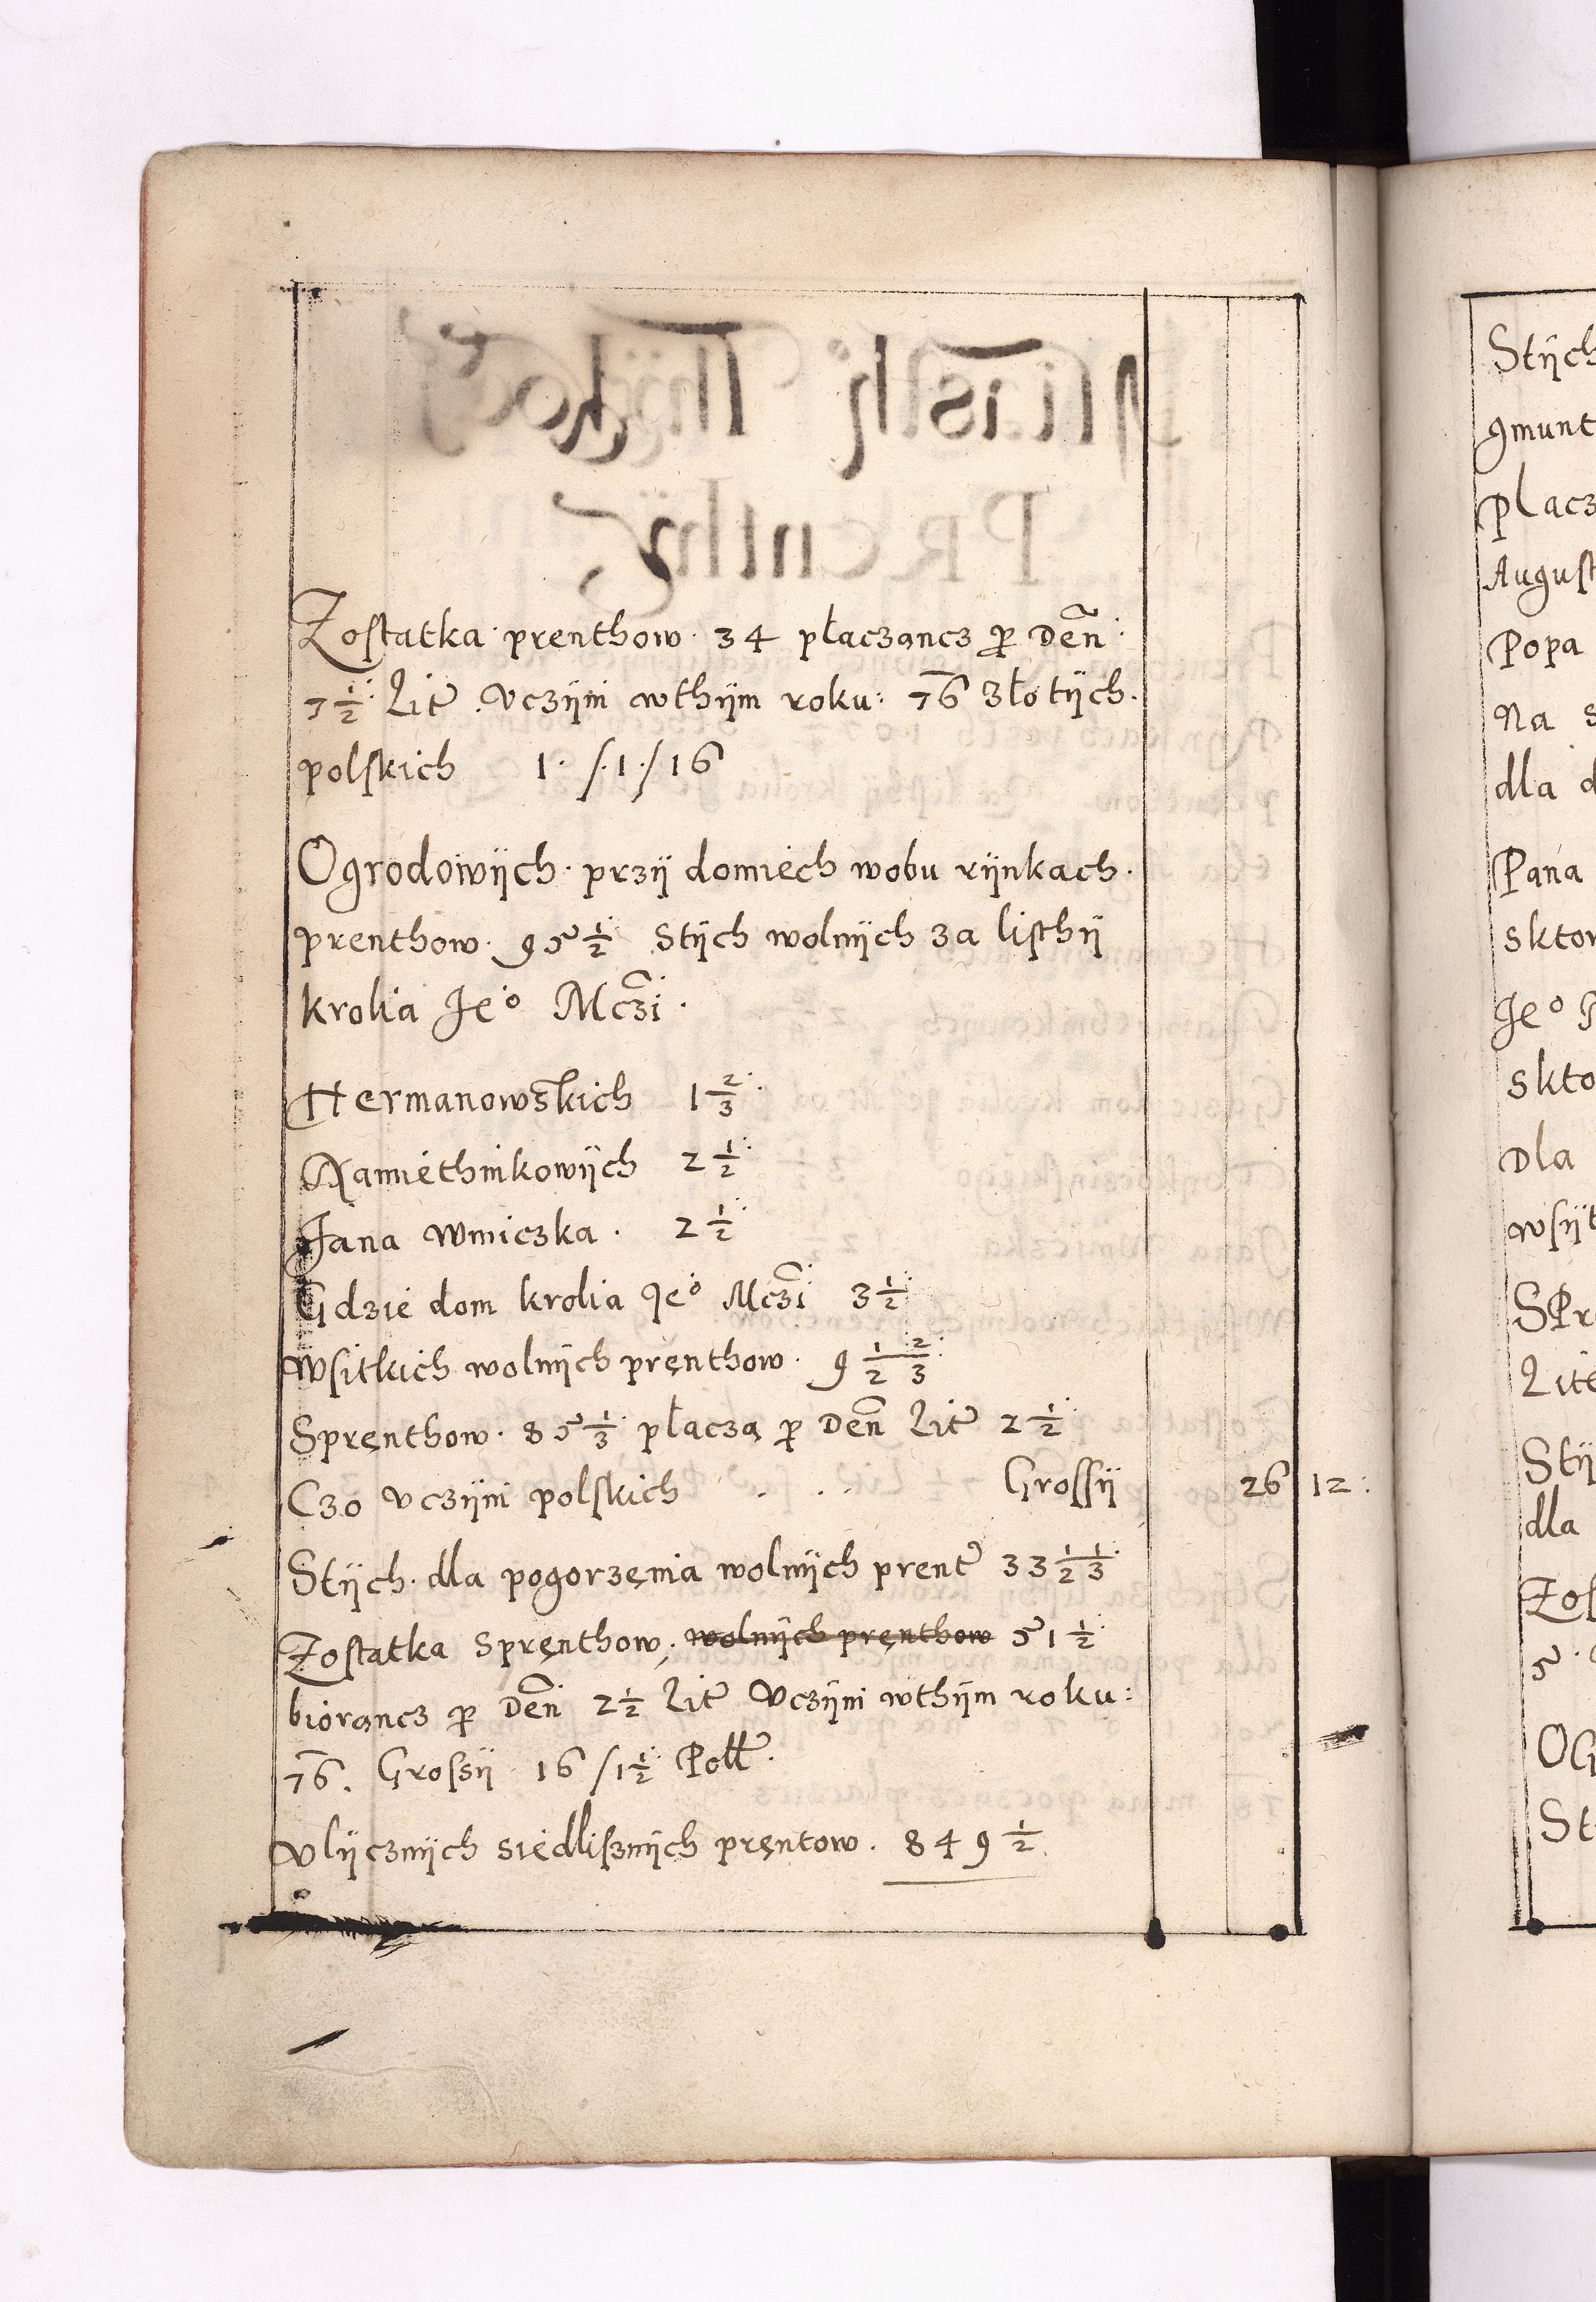 Zostatka · prenthow · 34 płaczancz ꝑ Deñ :
7 1/2 : Lit̃ . Vczÿni wthÿm roku : 76 złotÿch .
polskich 1 · /·1·/16
Ogrodowÿch · przÿ domiech wobu rÿnkach .
prenthow · 95 1/2 Stÿch wolnÿch za listhÿ
krolia Je° Mczi .
Hermanowskich 1 2/3 :
Kamiethnikowÿch 2 1/2 :
Jana Wmiczka . 2 1/2 :
Gdzie dom krolia Je° Mczi 3 1/2 :
Wsitkich wolnÿch pręnthow . 9 1/2 2/3 :
Spręnthow · 85 1/3 : płaczą ꝑ Deñ Lit̃ 2 1/2 :
Czo vczÿni polskich . . . Grossÿ 26 12 :
Stÿch · dla pogorzęnia wolnÿch prent̃ 33 1/2 1/3 :
Zostatka Spręnthow . wolnÿch pręnthow 51 1/2 :
biorancz ꝑ Deñ 2 1/2 Lit̃ Vczÿni wthÿm roku :
76 . Grossÿ 16 /1 1/2 : Poll̃ .
Vlÿcznÿch siedlisznÿch pręntow . 849 1/2 .
Stÿch
gmunt
Placz
August
Popa
Na
dla
Pana
sktor
Je°
skto
Dla
wsÿt
SPr
Lite
Stÿ
dla
Zos
5 ·
OG
St